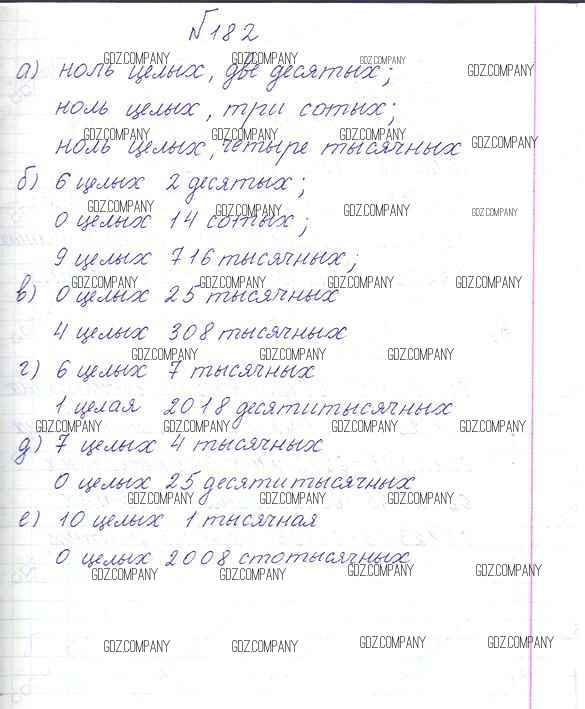 №182
а) ноль целых, две десятых;
ноль целых, три сотых;
ноль целых, четыре тысячных
б) 6 целых 2 десятых;
0 целых 14 сотых;
9 целых 716 тысячных;
в) 0 целых 25 тысячных
4 целых 308 тысячных
г) 6 целых 7 тысячных
1 целая 2018 десятитысячных
д) 7 целых 4 тысячных
0 целых 25 десятитысячных
е) 10 целых 1 тысячная
0 целых 2008 стотысячных
GDZ.COMPANY GDZ.COMPANY GDZ.COMPANY GDZ.COMPANY
GDZ.COMPANY GDZ.COMPANY GDZ.COMPANY GDZ.COMPANY
GDZ.COMPANY GDZ.COMPANY GDZ.COMPANY GDZ.COMPANY
GDZ.COMPANY GDZ.COMPANY GDZ.COMPANY GDZ.COMPANY
GDZ.COMPANY GDZ.COMPANY GDZ.COMPANY
GDZ.COMPANY GDZ.COMPANY GDZ.COMPANY GDZ.COMPANY
GDZ.COMPANY GDZ.COMPANY GDZ.COMPANY
GDZ.COMPANY GDZ.COMPANY GDZ.COMPANY GDZ.COMPANY
GDZ.COMPANY GDZ.COMPANY GDZ.COMPANY GDZ.COMPANY